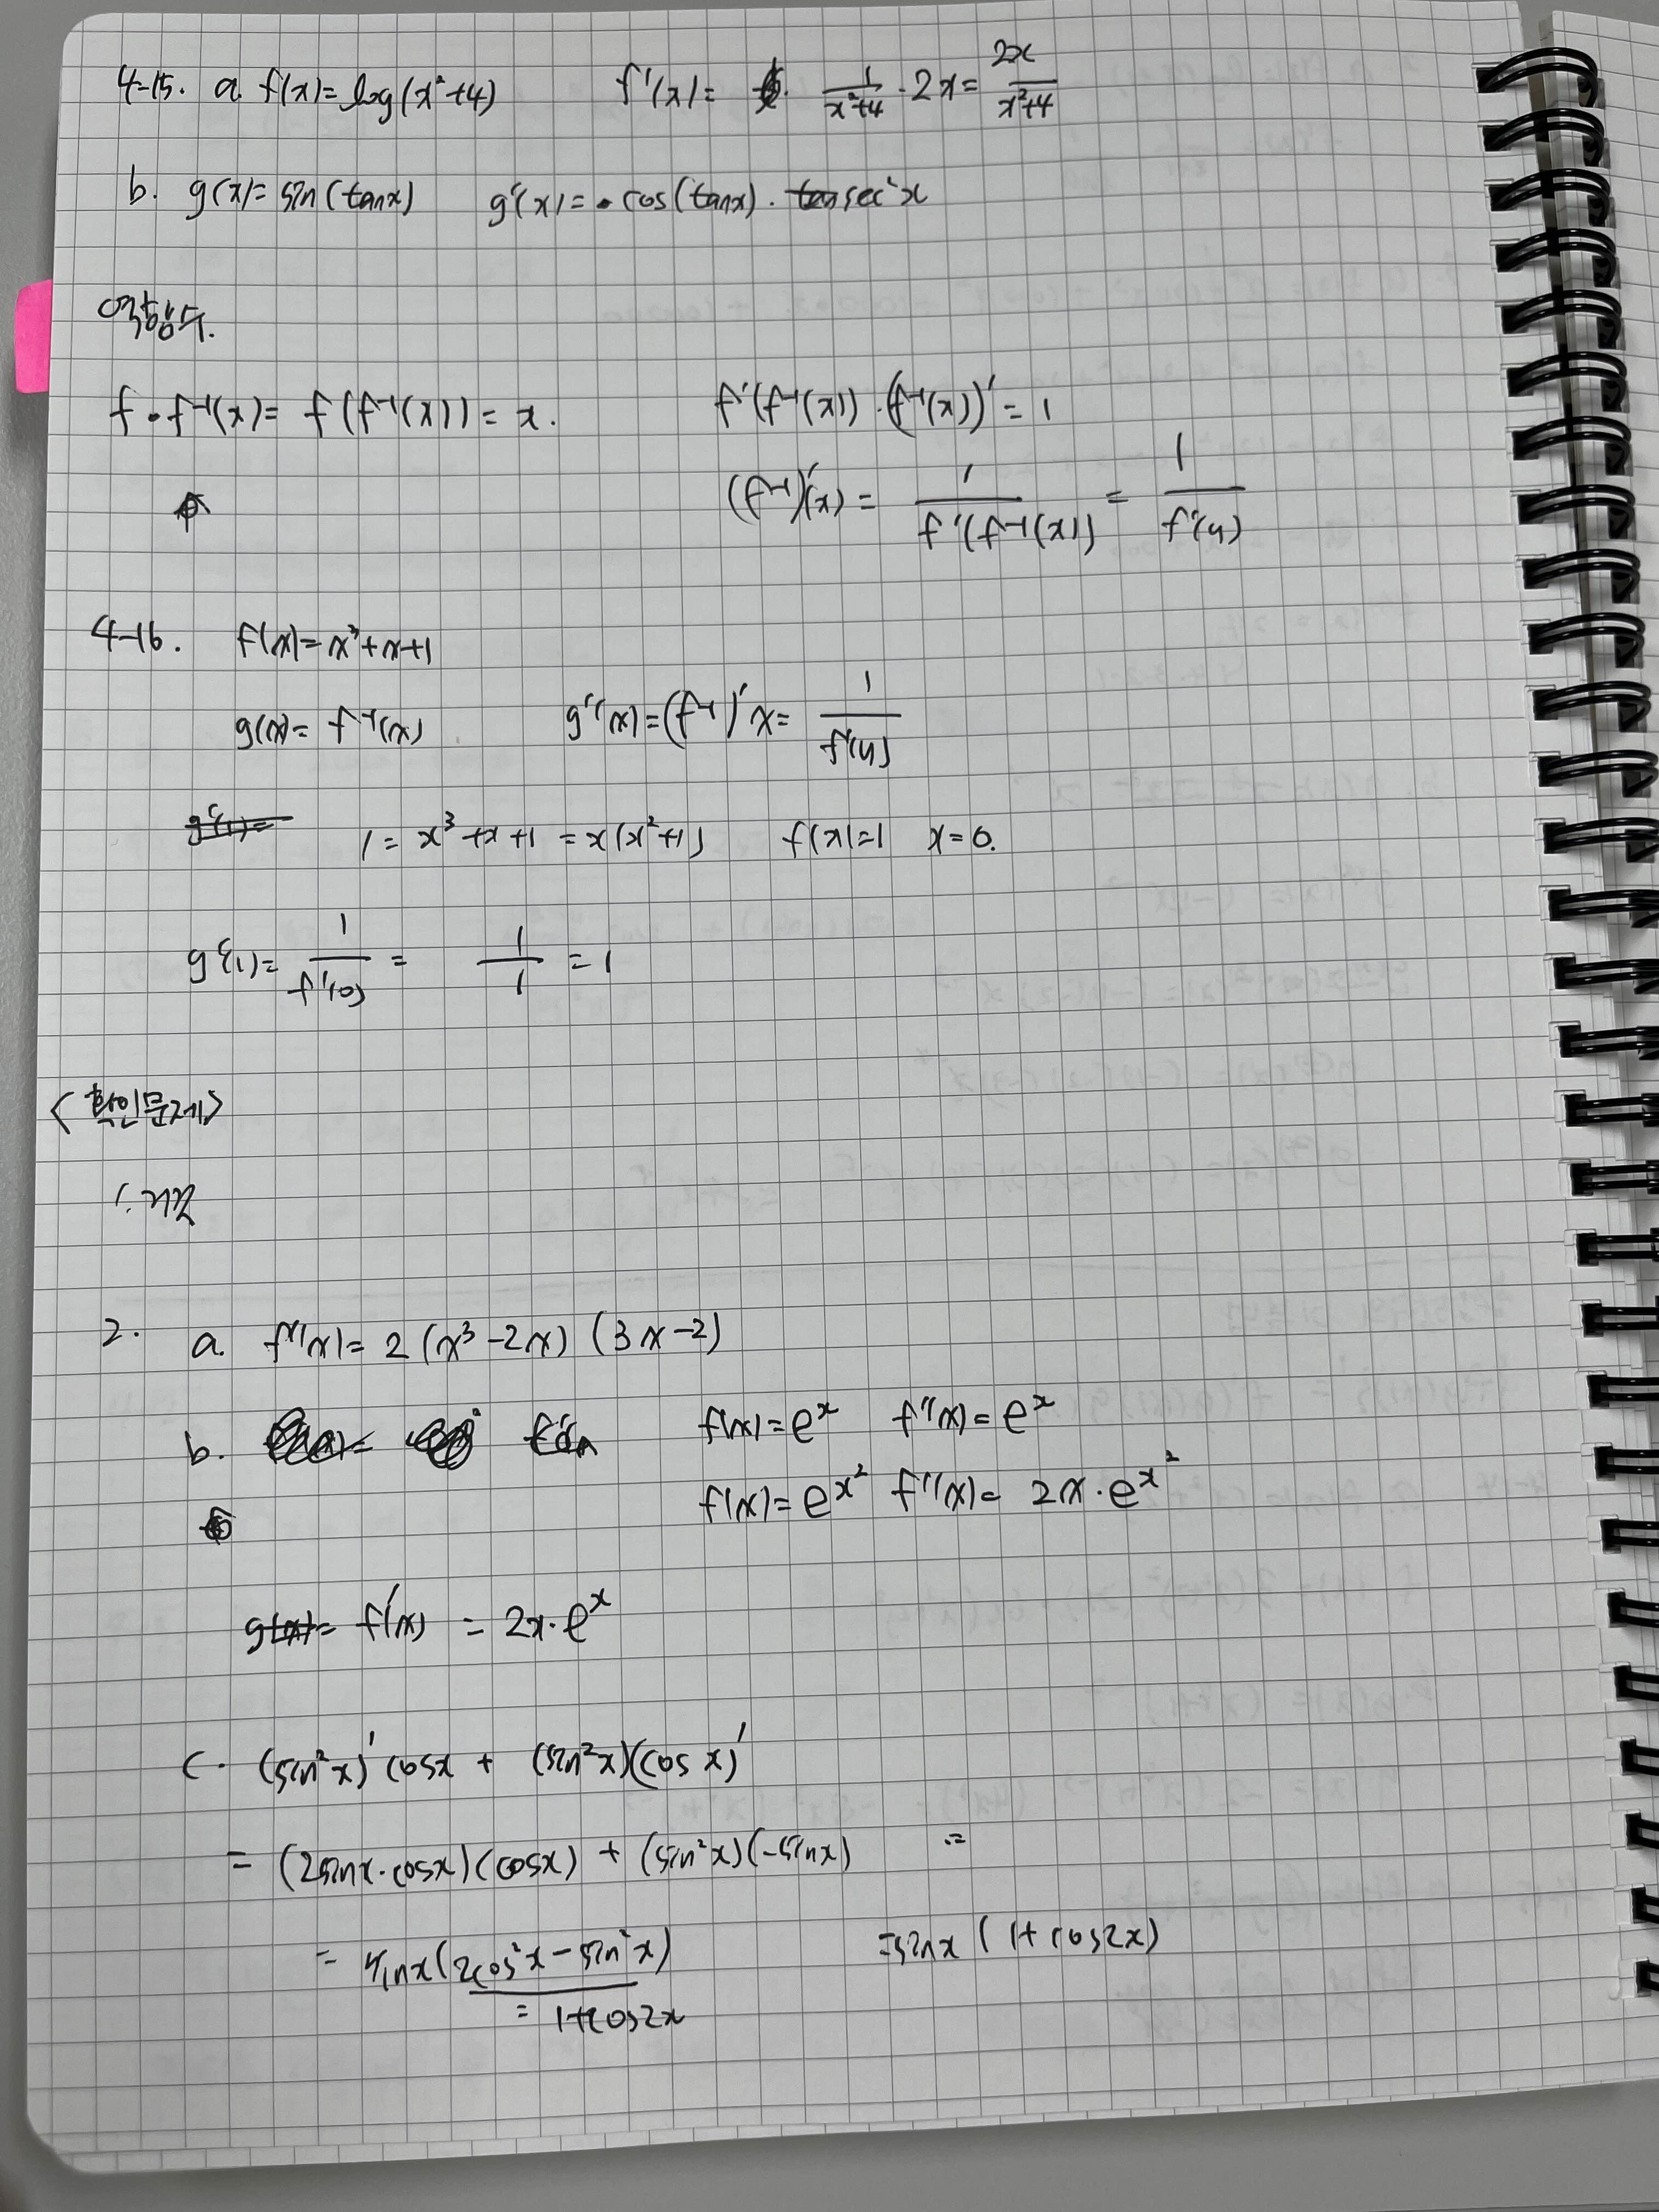 4-15. a. f(x)=log(x²+4) f'(x)= 1/(x²+4) · 2x = 2x/(x²+4)
b. g(x)=sin(tanx) g'(x)= cos(tanx) · sec²x
역함수.
f∘f⁻¹(x)= f(f⁻¹(x)) = x. f'(f⁻¹(x)) · (f⁻¹(x))' = 1
(f⁻¹)'(x) = 1/f'(f⁻¹(x)) = 1/f'(y)
4-16. f(x)=x³+x+1
g(x)= f⁻¹(x) g'(x)=(f⁻¹)'x= 1/f'(y)
g'(1)= 1= x³+x+1 =x(x²+1) f(x)=1 x=0.
g'(1)= 1/f'(0) = 1/1 = 1
<확인문제>
2. a. f'(x)= 2(x³-2x)(3x-2)
b. f(x)=eˣ f'(x)=eˣ
f(x)=e^x² f'(x)= 2x·e^x²
g(x)= f'(x) = 2x·eˣ
c. (sin²x)'cosx + (sin²x)(cosx)'
= (2sinx·cosx)(cosx) + (sin²x)(-sinx) =
= sinx(2cos²x-sin²x) =sinx(1+cos2x)
= 1+cos2x